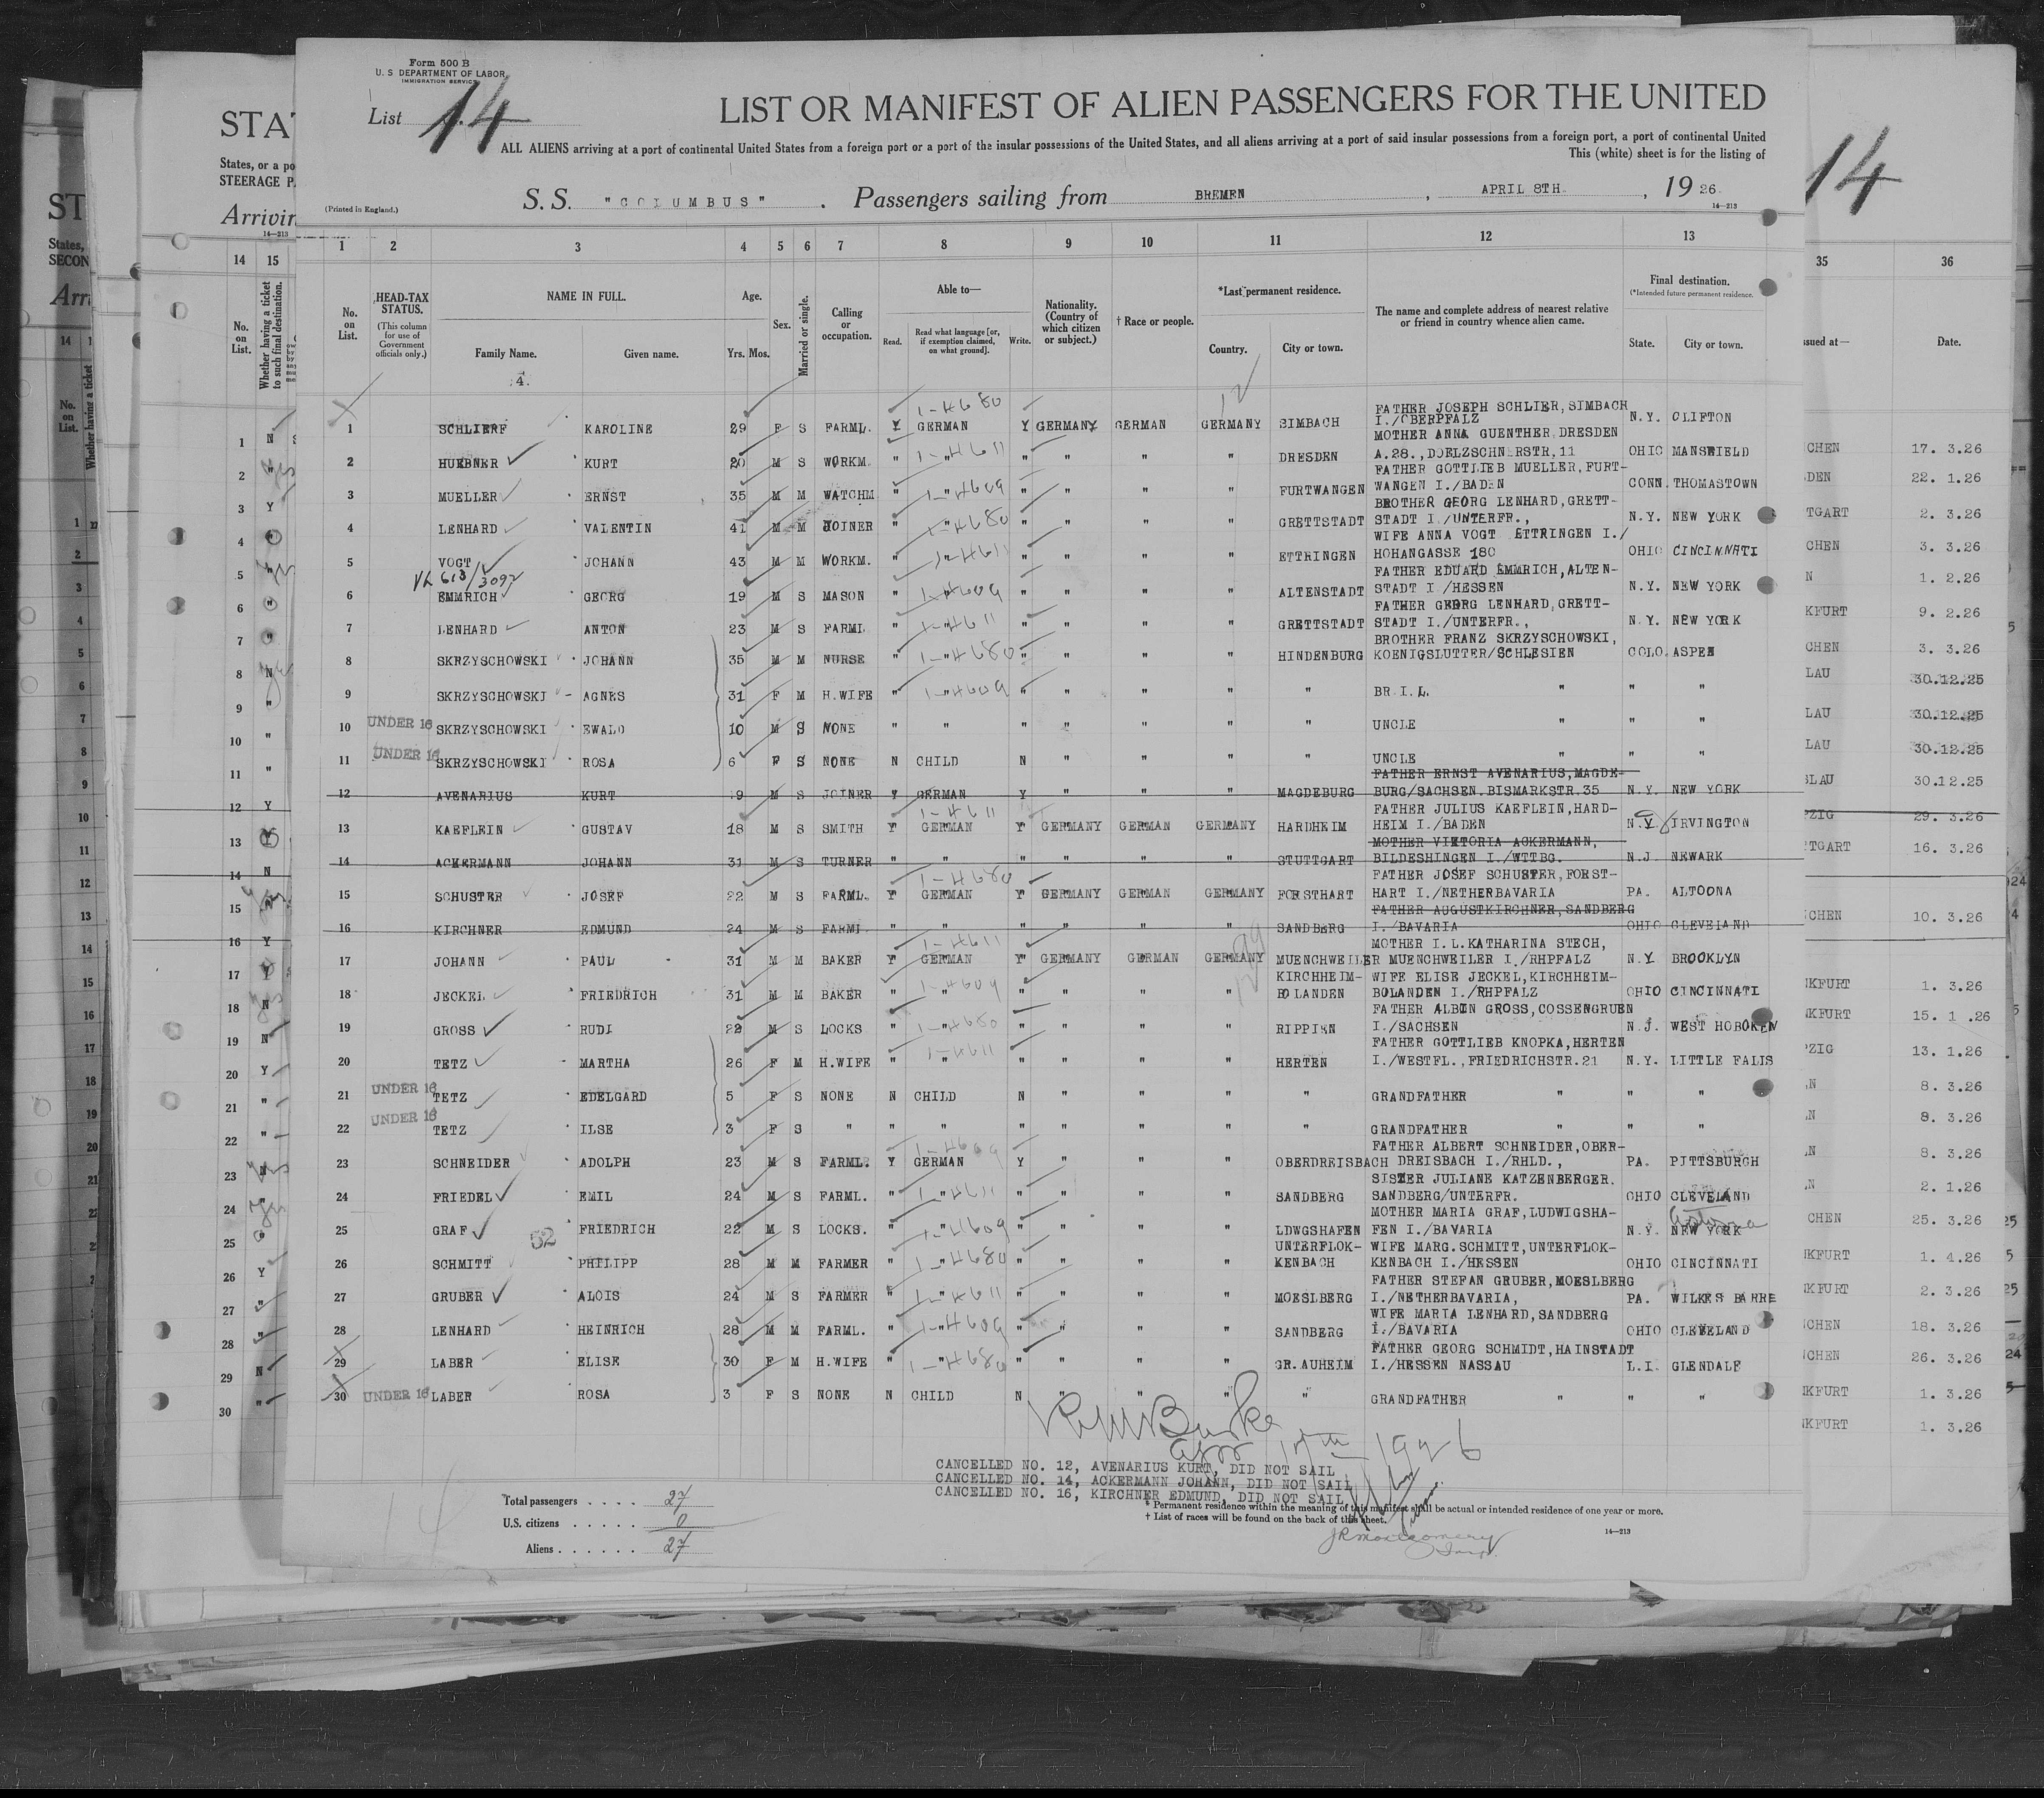 Form 500 B
U. S. DEPARTMENT OF LABOR
IMMIGRATION SERVICE
List 14
LIST OR MANIFEST OF ALIEN PASSENGERS FOR THE UNITED
ALL ALIENS arriving at a port of continental United States from a foreign port or a port of the insular possessions of the United States, and all aliens arriving at a port of said insular possessions from a foreign port, a port of continental United
This (white) sheet is for the listing of
(Printed in England.)
S. S. "COLUMBUS" . Passengers sailing from BREMEN , APRIL 8TH. , 1926.
14—213
1 2 3 4 5 6 7 8 9 10 11 12 13
No. on List.
HEAD-TAX STATUS.
(This column for use of Government officials only.)
NAME IN FULL.
Family Name. Given name.
Age.
Yrs. Mos.
Sex.
Married or single.
Calling or occupation.
Able to—
Read. Read what language [or, if exemption claimed, on what ground]. Write.
Nationality. (Country of which citizen or subject.)
† Race or people.
*Last permanent residence.
Country. City or town.
The name and complete address of nearest relative or friend in country whence alien came.
Final destination.
(*Intended future permanent residence.
State. City or town.
1 SCHLIERF KAROLINE 29 F S FARML. Y GERMAN Y GERMANY GERMAN GERMANY SIMBACH FATHER JOSEPH SCHLIER, SIMBACH I./OBERPFALZ N.Y. CLIFTON
2 HUEBNER KURT 20 M S WORKM. " " " " " " DRESDEN MOTHER ANNA GUENTHER DRESDEN A.28.,DOELZSCHNERSTR,11 OHIO MANSFIELD
3 MUELLER ERNST 35 M M WATCHM " " " " " " FURTWANGEN FATHER GOTTLIEB MUELLER, FURT-WANGEN I./BADEN CONN. THOMASTOWN
4 LENHARD VALENTIN 41 M M JOINER " " " " " " GRETTSTADT BROTHER GEORG LENHARD, GRETT-STADT I./UNTERFR., N.Y. NEW YORK
5 VOGT JOHANN 43 M M WORKM. " " " " " " ETTRINGEN WIFE ANNA VOGT ETTRINGEN I./ HOHANGASSE 180 OHIO CINCINNATI
6 EMMRICH GEORG 19 M S MASON " " " " " " ALTENSTADT FATHER EDUARD EMMRICH, ALTEN-STADT I./HESSEN N.Y. NEW YORK
7 LENHARD ANTON 23 M S FARML " " " " " " GRETTSTADT FATHER GEORG LENHARD, GRETT-STADT I./UNTERFR., N.Y. NEW YORK
8 SKRZYSCHOWSKI JOHANN 35 M M NURSE " " " " " " HINDENBURG BROTHER FRANZ SKRZYSCHOWSKI, KOENIGSLUTTER/SCHLESIEN COLO. ASPEN
9 SKRZYSCHOWSKI AGNES 31 F M H.WIFE " " " " " " " BR.I.L. " " "
10 UNDER 16 SKRZYSCHOWSKI EWALD 10 M S NONE " " " " " " " UNCLE " " "
11 UNDER 16 SKRZYSCHOWSKI ROSA 6 F S NONE N CHILD N " " " " UNCLE " " "
12 AVENARIUS KURT 19 M S JOINER Y GERMAN Y " " " MAGDEBURG FATHER ERNST AVENARIUS, MAGDE-BURG/SACHSEN.BISMARKSTR.35 N.Y. NEW YORK
13 KAEFLEIN GUSTAV 18 M S SMITH Y GERMAN Y GERMANY GERMAN GERMANY HARDHEIM FATHER JULIUS KAEFLEIN, HARD-HEIM I./BADEN N.Y IRVINGTON
14 ACKERMANN JOHANN 31 M S TURNER " " " " " " STUTTGART MOTHER VIKTORIA ACKERMANN, BILDESHINGEN I./WTTBG. N.J. NEWARK
15 SCHUSTER JOSEF 22 M S FARML. Y GERMAN Y GERMANY GERMAN GERMANY FORSTHART FATHER JOSEF SCHUSTER, FORST-HART I./NETHERBAVARIA PA. ALTOONA
16 KIRCHNER EDMUND 24 M S FARML. " " " " " " SANDBERG FATHER AUGUSTKIRCHNER, SANDBERG I./BAVARIA OHIO CLEVELAND
17 JOHANN PAUL 31 M M BAKER Y GERMAN Y GERMANY GERMAN GERMANY MUENCHWEILER MOTHER I.L.KATHARINA STECH, MUENCHWEILER I./RHPFALZ N.Y. BROOKLYN
18 JECKEL FRIEDRICH 31 M M BAKER " " " " " " KIRCHHEIM-BOLANDEN WIFE ELISE JECKEL, KIRCHHEIM-BOLANDEN I./RHPFALZ OHIO CINCINNATI
19 GROSS RUDI 22 M S LOCKS " " " " " " RIPPIEN FATHER ALBIN GROSS, COSSENGRUEN I./SACHSEN N.J. WEST HOBOKEN
20 TETZ MARTHA 26 F M H.WIFE " " " " " " HERTEN FATHER GOTTLIEB KNOPKA, HERTEN I./WESTFL.,FRIEDRICHSTR.21 N.Y. LITTLE FALLS
21 UNDER 16 TETZ EDELGARD 5 F S NONE N CHILD N " " " " GRANDFATHER " " "
22 UNDER 16 TETZ ILSE 3 F S " " " " " " " " GRANDFATHER " " "
23 SCHNEIDER ADOLPH 23 M S FARML. Y GERMAN Y " " " OBERDREISBACH FATHER ALBERT SCHNEIDER, OBER-DREISBACH I./RHLD., PA. PITTSBURGH
24 FRIEDEL EMIL 24 M S FARML. " " " " " " SANDBERG SISTER JULIANE KATZENBERGER. SANDBERG/UNTERFR. OHIO CLEVELAND
25 GRAF 52 FRIEDRICH 22 M S LOCKS. " " " " " " LDWGSHAFEN MOTHER MARIA GRAF, LUDWIGSHA-FEN I./BAVARIA N.Y. NEW YORK
26 SCHMITT PHILIPP 28 M M FARMER " " " " " " UNTERFLOK-KENBACH WIFE MARG.SCHMITT, UNTERFLOK-KENBACH I./HESSEN OHIO CINCINNATI
27 GRUBER ALOIS 24 M S FARMER " " " " " " MOESLBERG FATHER STEFAN GRUBER, MOESLBERG I./NETHERBAVARIA, PA. WILKES BARRE
28 LENHARD HEINRICH 28 M M FARML. " " " " " " SANDBERG WIFE MARIA LENHARD, SANDBERG I./BAVARIA OHIO CLEVELAND
29 LABER ELISE 30 F M H.WIFE " " " " " " GR.AUHEIM FATHER GEORG SCHMIDT, HAINSTADT I./HESSEN NASSAU L.I. GLENDALE
30 UNDER 16 LABER ROSA 3 F S NONE N CHILD N " " " " GRANDFATHER " " "
CANCELLED NO. 12, AVENARIUS KURT, DID NOT SAIL
CANCELLED NO. 14, ACKERMANN JOHANN, DID NOT SAIL
CANCELLED NO. 16, KIRCHNER EDMUND, DID NOT SAIL
Total passengers . . . . 27
U.S. citizens . . . . . 0
Aliens . . . . . . 27
* Permanent residence within the meaning of this manifest shall be actual or intended residence of one year or more.
† List of races will be found on the back of this sheet.
14—213
JR Montgomery
14
35 36
Date.
17. 3.26
22. 1.26
2. 3.26
3. 3.26
1. 2.26
9. 2.26
3. 3.26
30.12.25
30.12.25
30.12.25
30.12.25
29. 3.26
16. 3.26
10. 3.26
1. 3.26
15. 1 .26
13. 1.26
8. 3.26
8. 3.26
8. 3.26
2. 1.26
25. 3.26
1. 4.26
2. 3.26
18. 3.26
26. 3.26
1. 3.26
1. 3.26